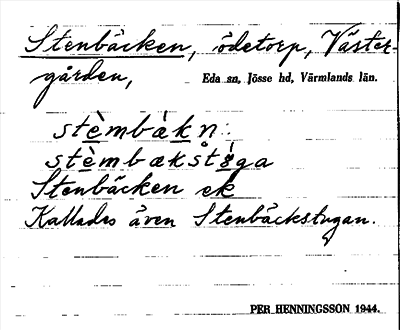 Stenbäcken, ödetorp, Väster-
gården, Eda sn, Jösse hd, Värmlands län.
stèmbàkn:
stèmbakstùga
Stenbäcken ek
Kallades även Stenbäckstugan.
PER HENNINGSSON 1944.